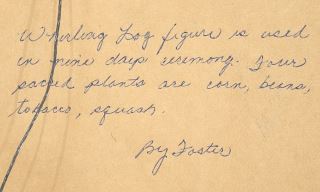 Whirling Log figure is used
in nine days ceremony. Four
sacred plants are corn, beans,
tobacco, squash.
By Foster